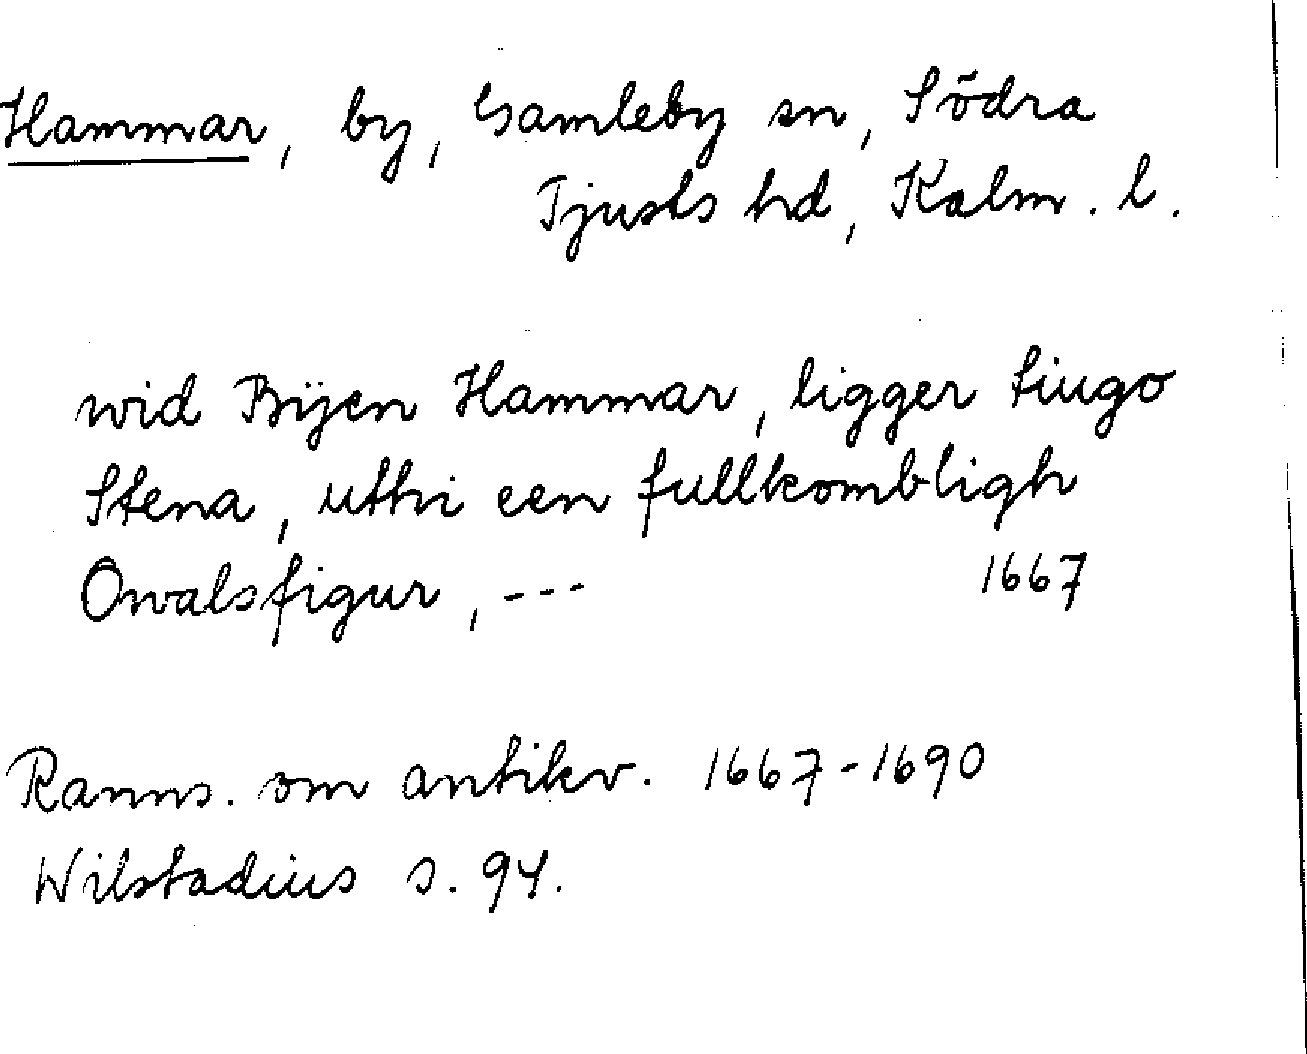 Hammar, by, Gamleby sn, Södra
Tjusts hd, Kalm. l.
wid Bÿen Hammar, ligger tiugo
Stena, uthi een fullkombligh
Owalsfigur, --- 1667
Ranns. om antikv. 1667-1690
Wilstadius s. 94.